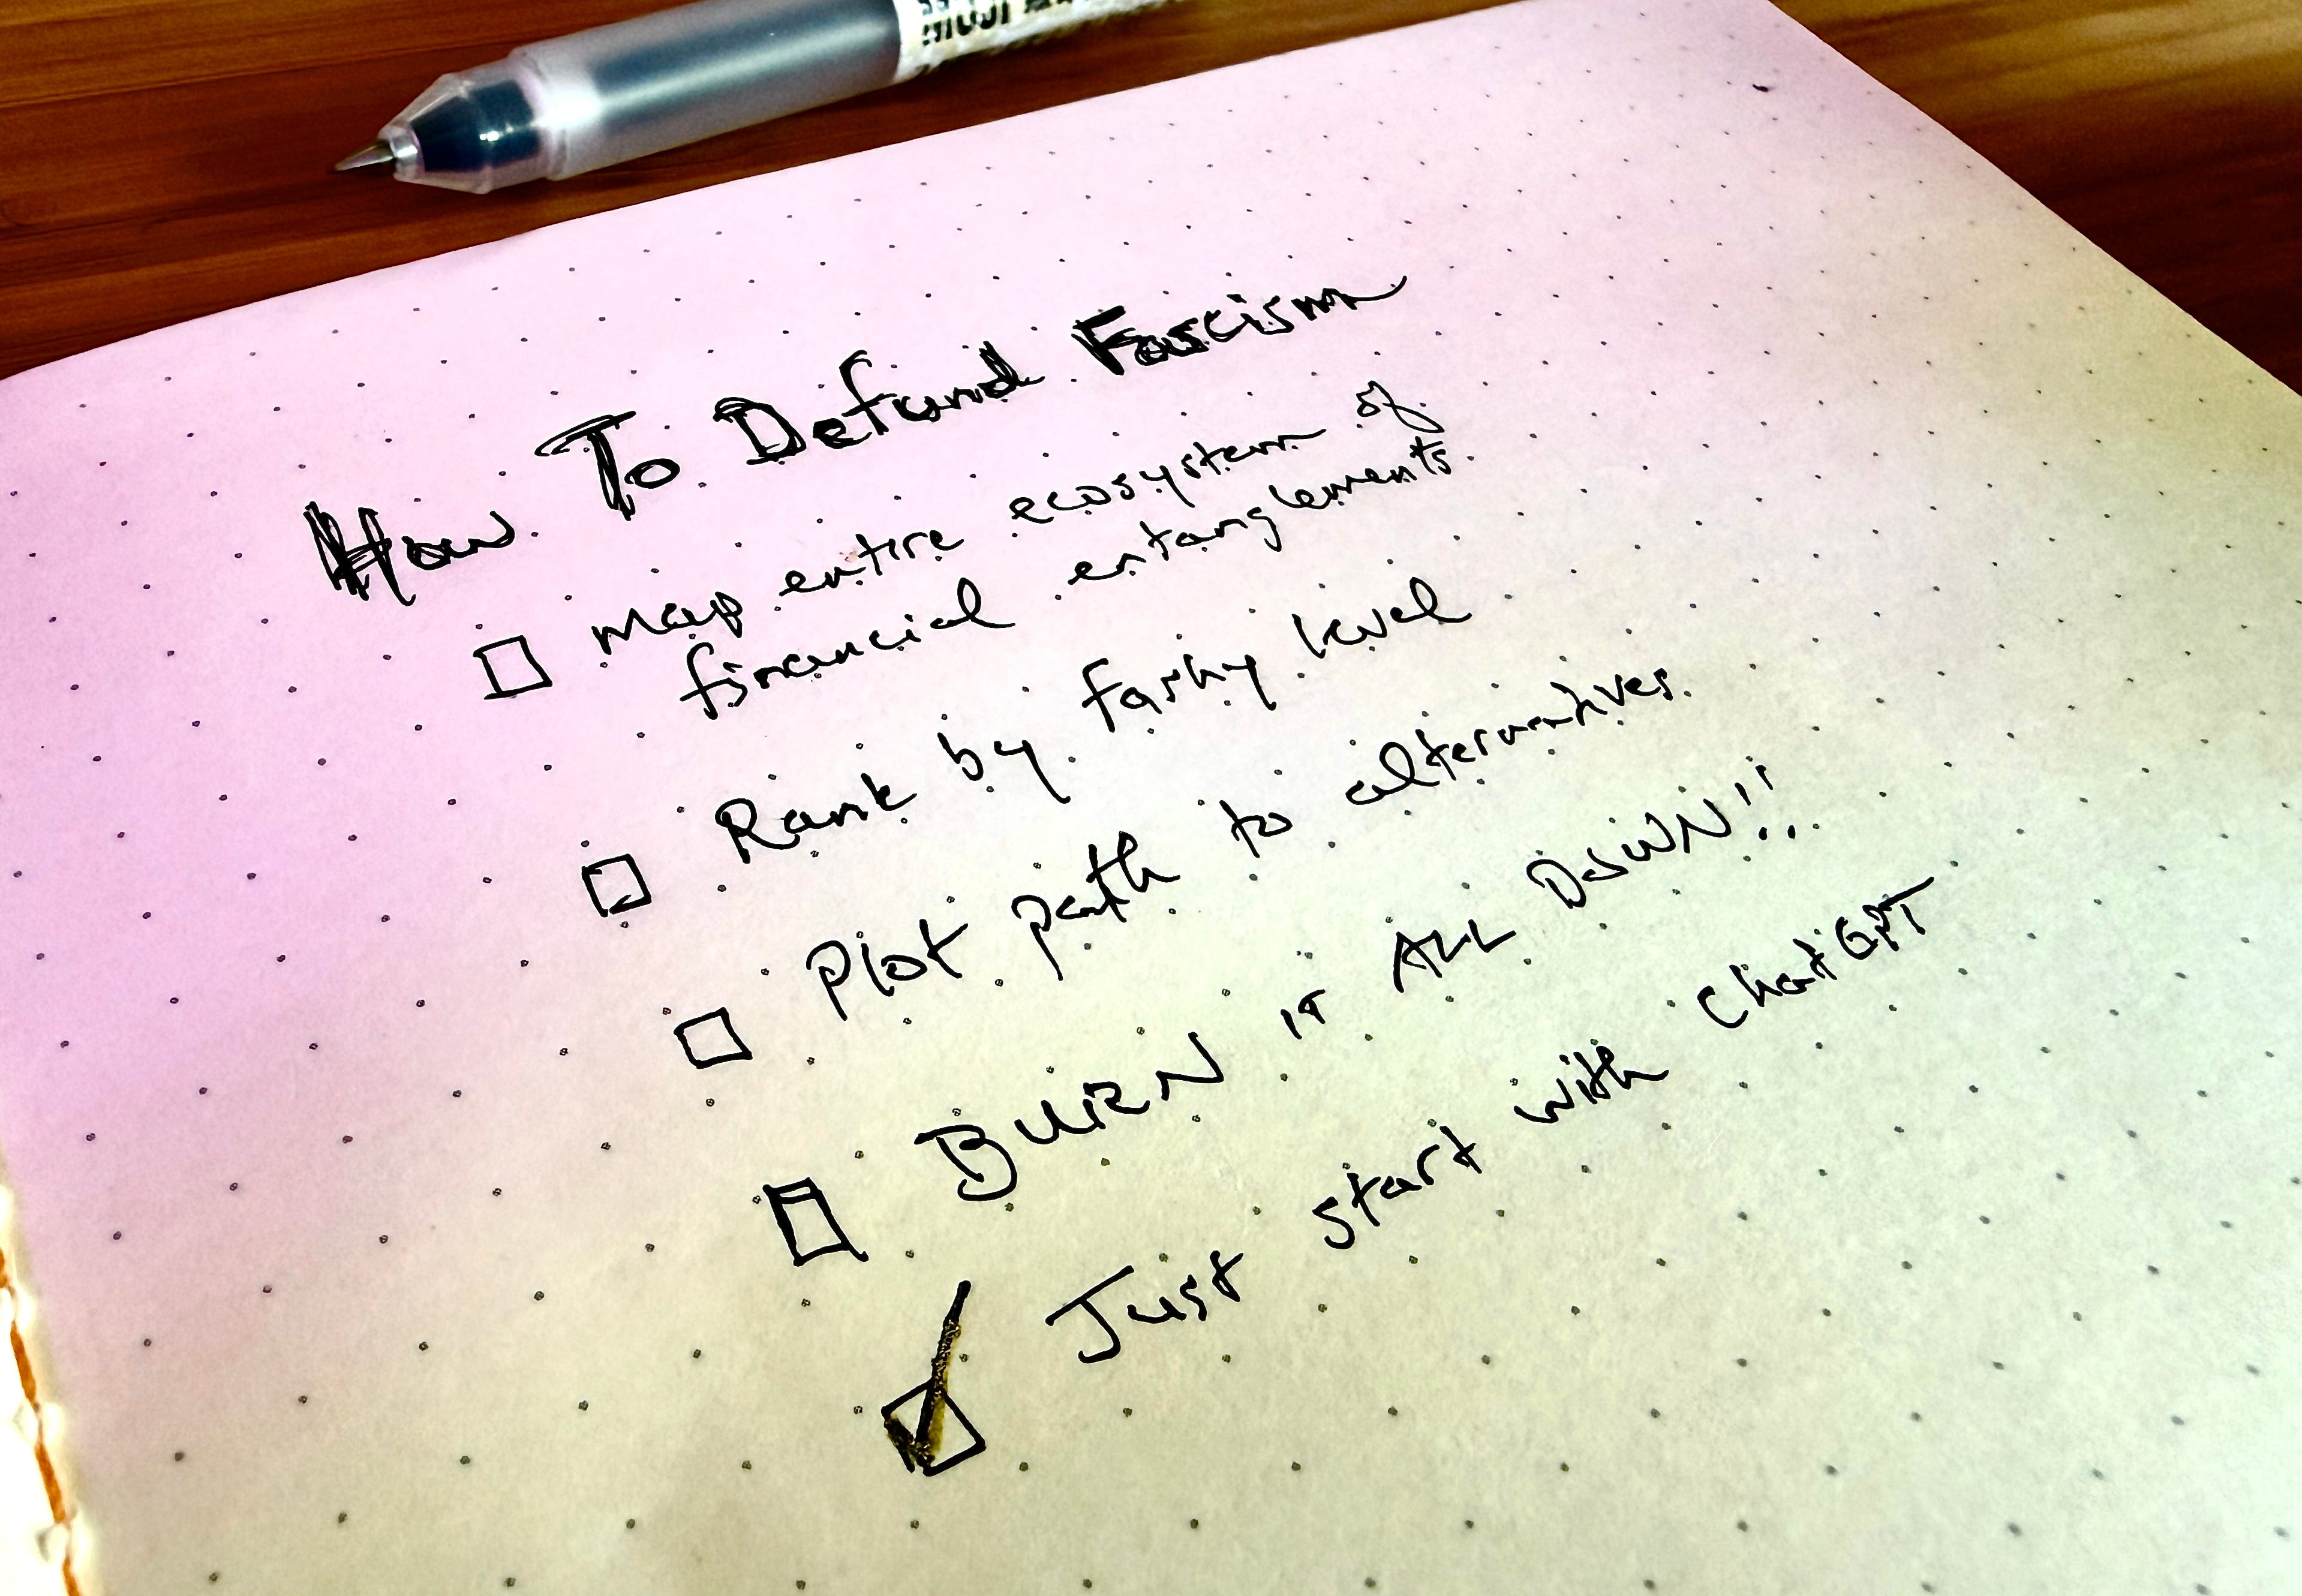 How To Defund Fascism
Map entire ecosystem of
financial entanglements
Rank by fashy level
Plot path to alternatives
BURN IT ALL DOWN!!
Just start with ChatGPT